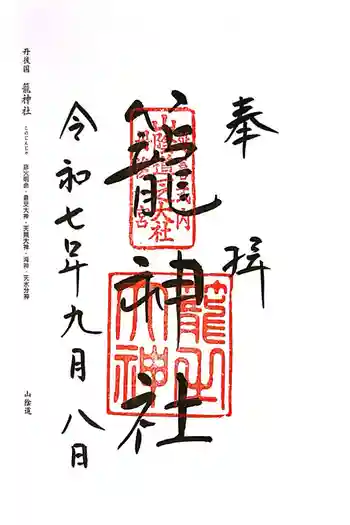 奉拝
籠神社
令和七年九月八日
丹後国 籠神社 このじんじゃ 彦火明命・豊受大神・天照大神・海神・天水分神
山陰道